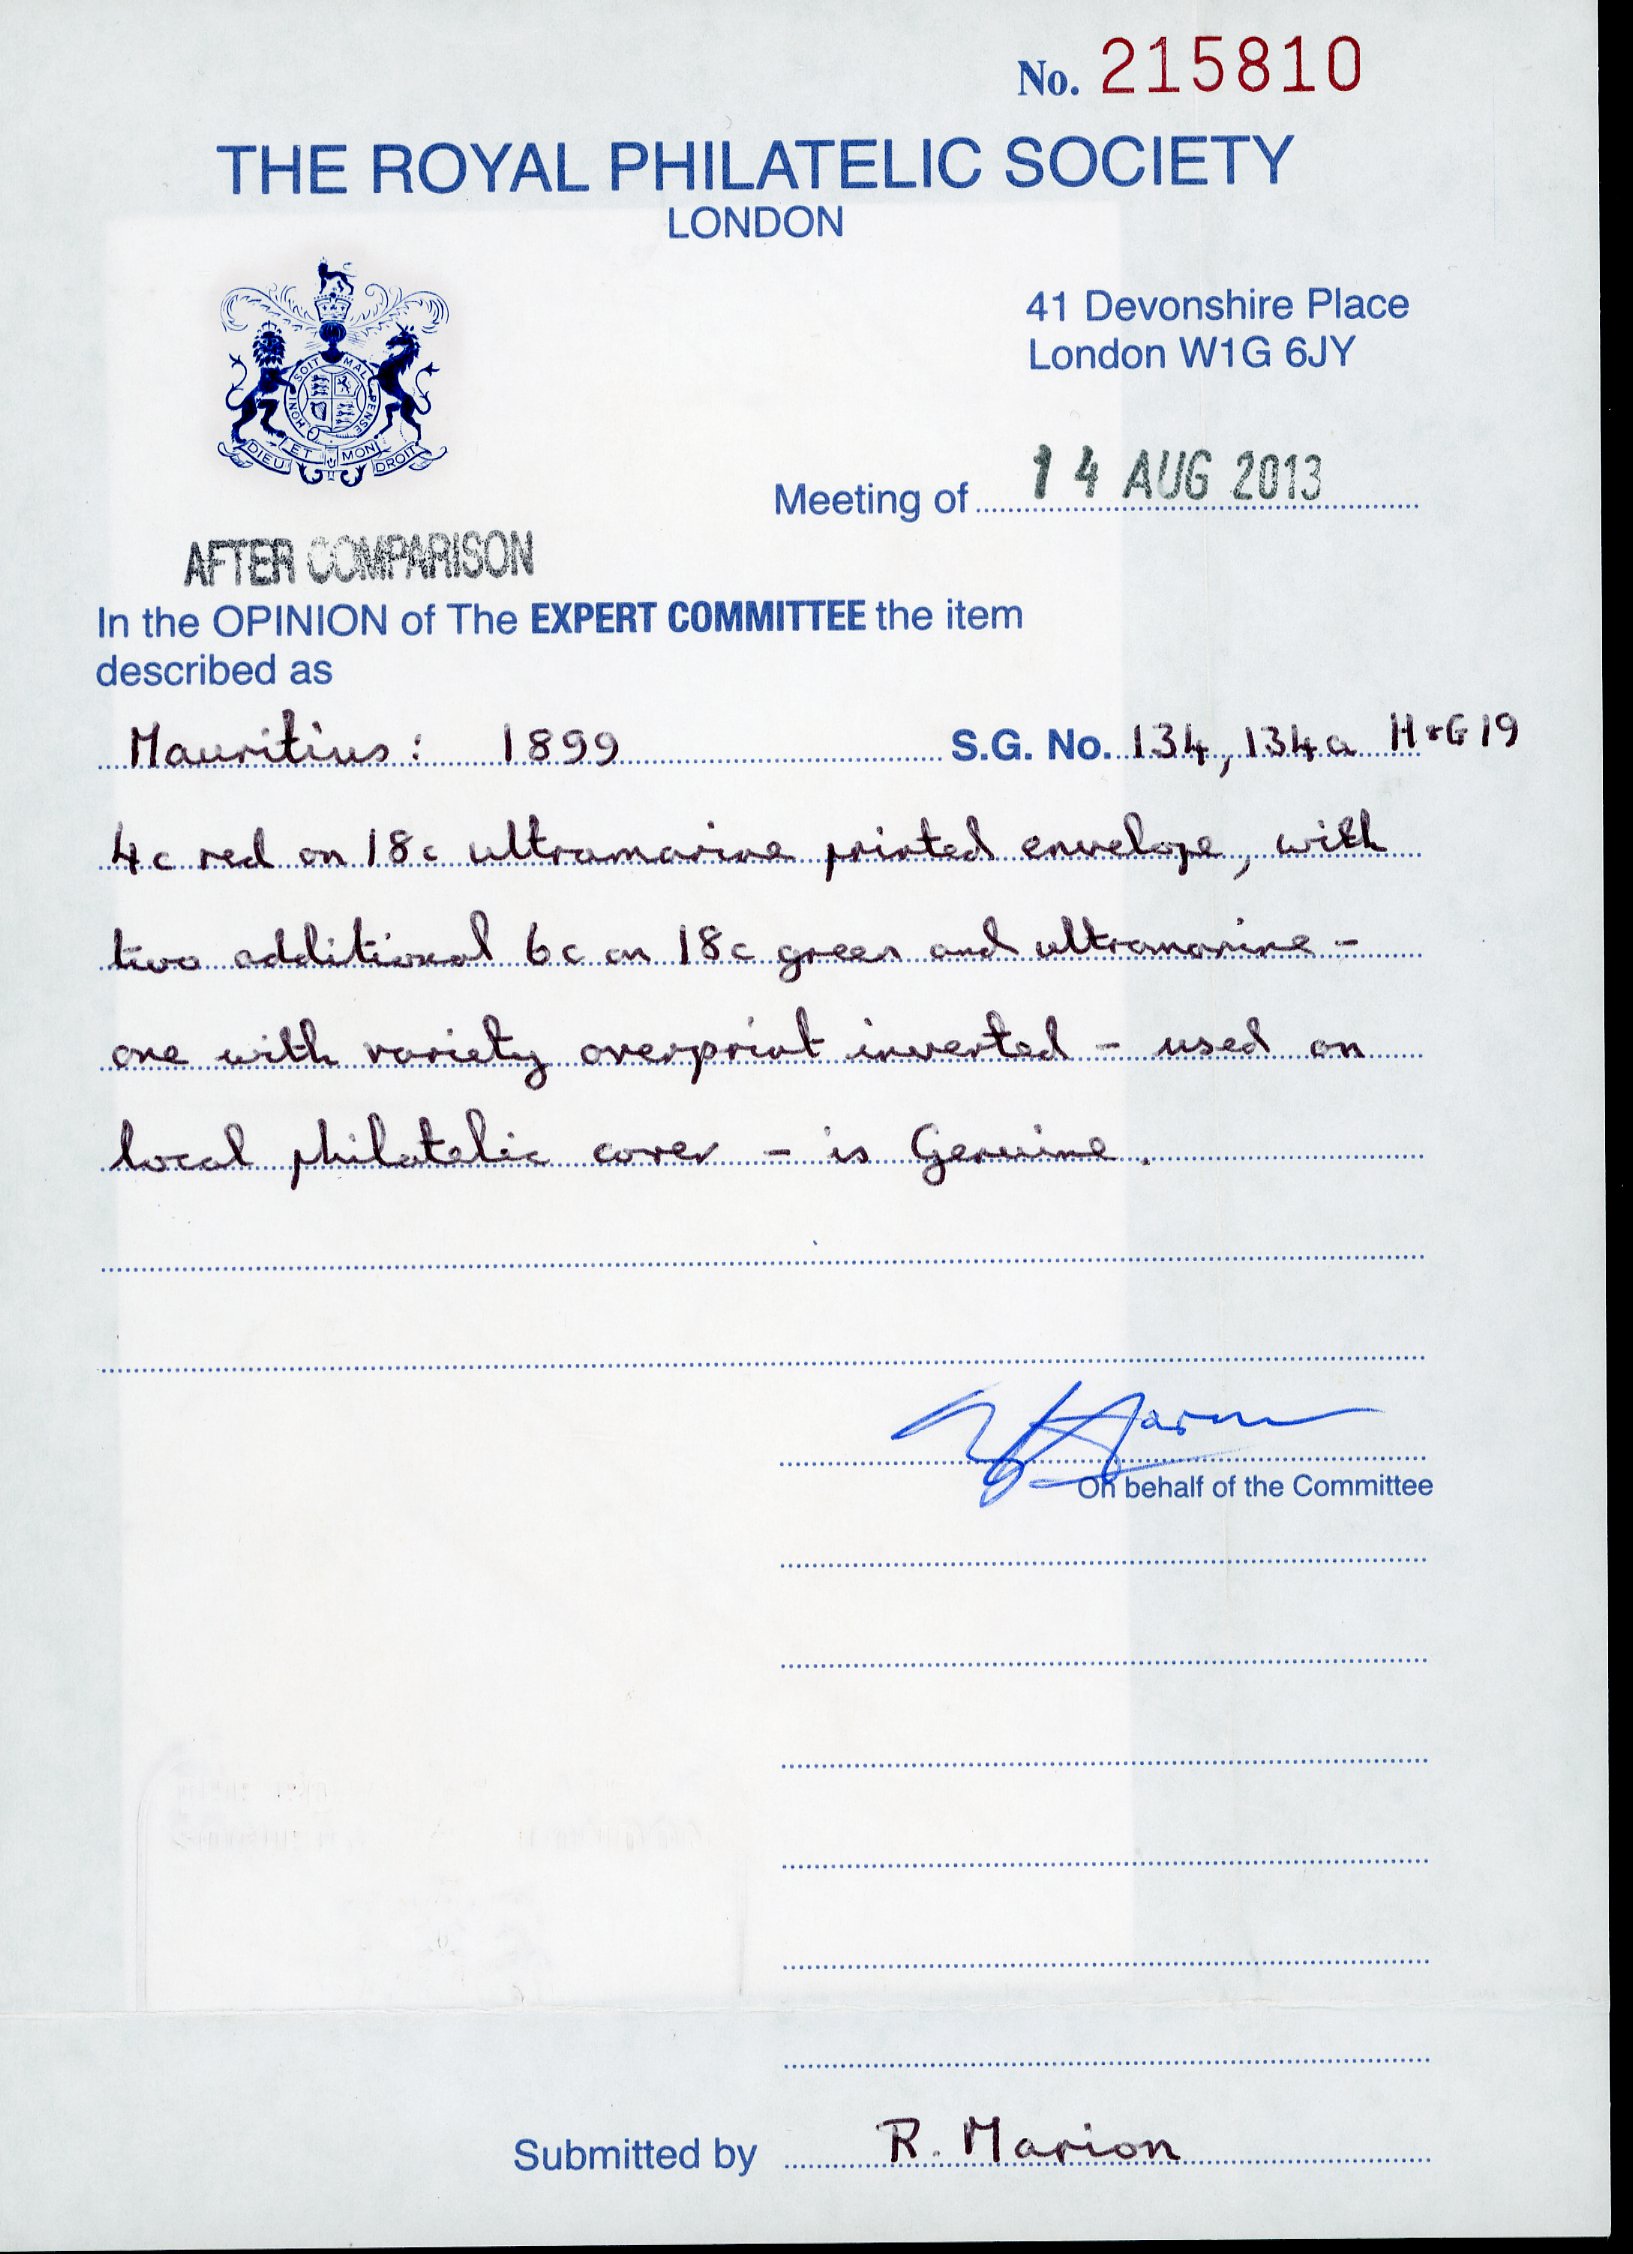 No. 215810
THE ROYAL PHILATELIC SOCIETY
LONDON
HONI SOIT MAL Y PENSE
DIEU ET MON DROIT
41 Devonshire Place
London W1G 6JY
Meeting of 14 AUG 2013
AFTER COMPARISON
In the OPINION of The EXPERT COMMITTEE the item
described as
Mauritius: 1899 S.G. No. 134, 134a H&G 19
4c red on 18c ultramarine printed envelope, with
two additional 6c on 18c green and ultramarine -
one with variety overprint inverted - used on
local philatelic cover - is Genuine.
On behalf of the Committee
Submitted by R. Marion